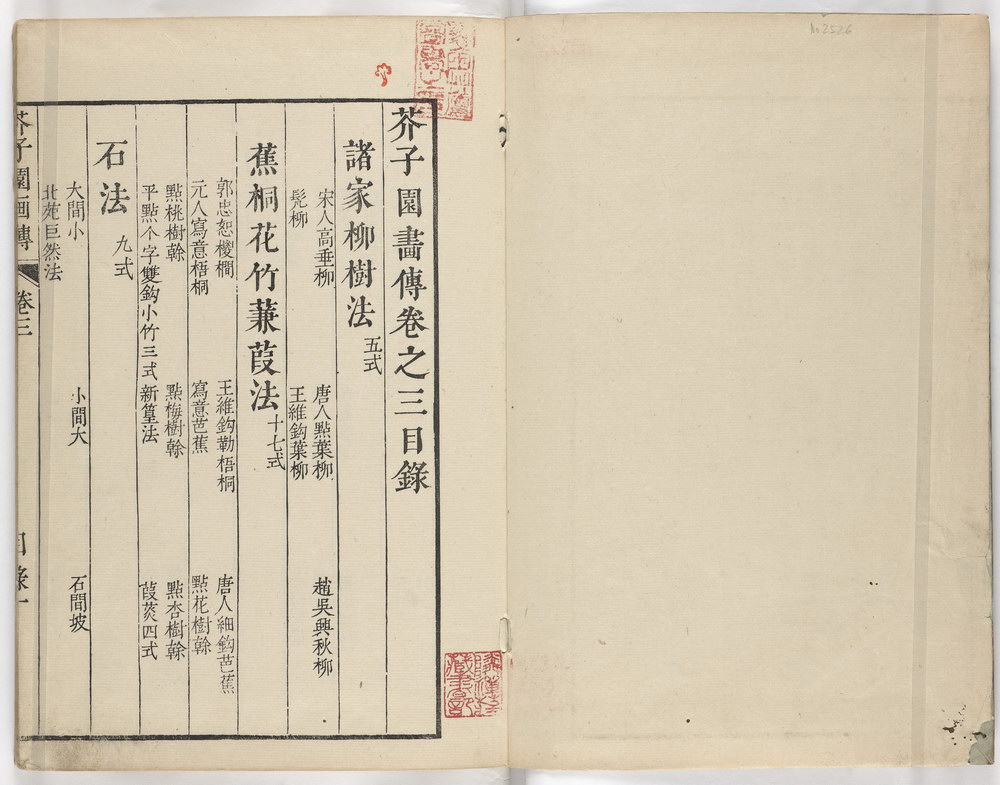 芥子園畫傳卷之三目錄
諸家柳樹法 五式
宋人高垂柳 唐人點葉柳 趙吳興秋柳
髡柳 王維鈎葉柳
蕉桐花竹蒹葭法 十七式
郭忠恕椶櫚 王維鈎勒梧桐 唐人細鈎芭蕉
元人寫意梧桐 寫意芭蕉 點花樹榦
點桃樹榦 點梅樹榦 點杏樹榦
平點个字雙鈎小竹三式 新篁法 葭菼四式
石法 九式
大間小 小間大 石間坡
北苑巨然法
芥子園画傳 卷三 目錄一
No 2526